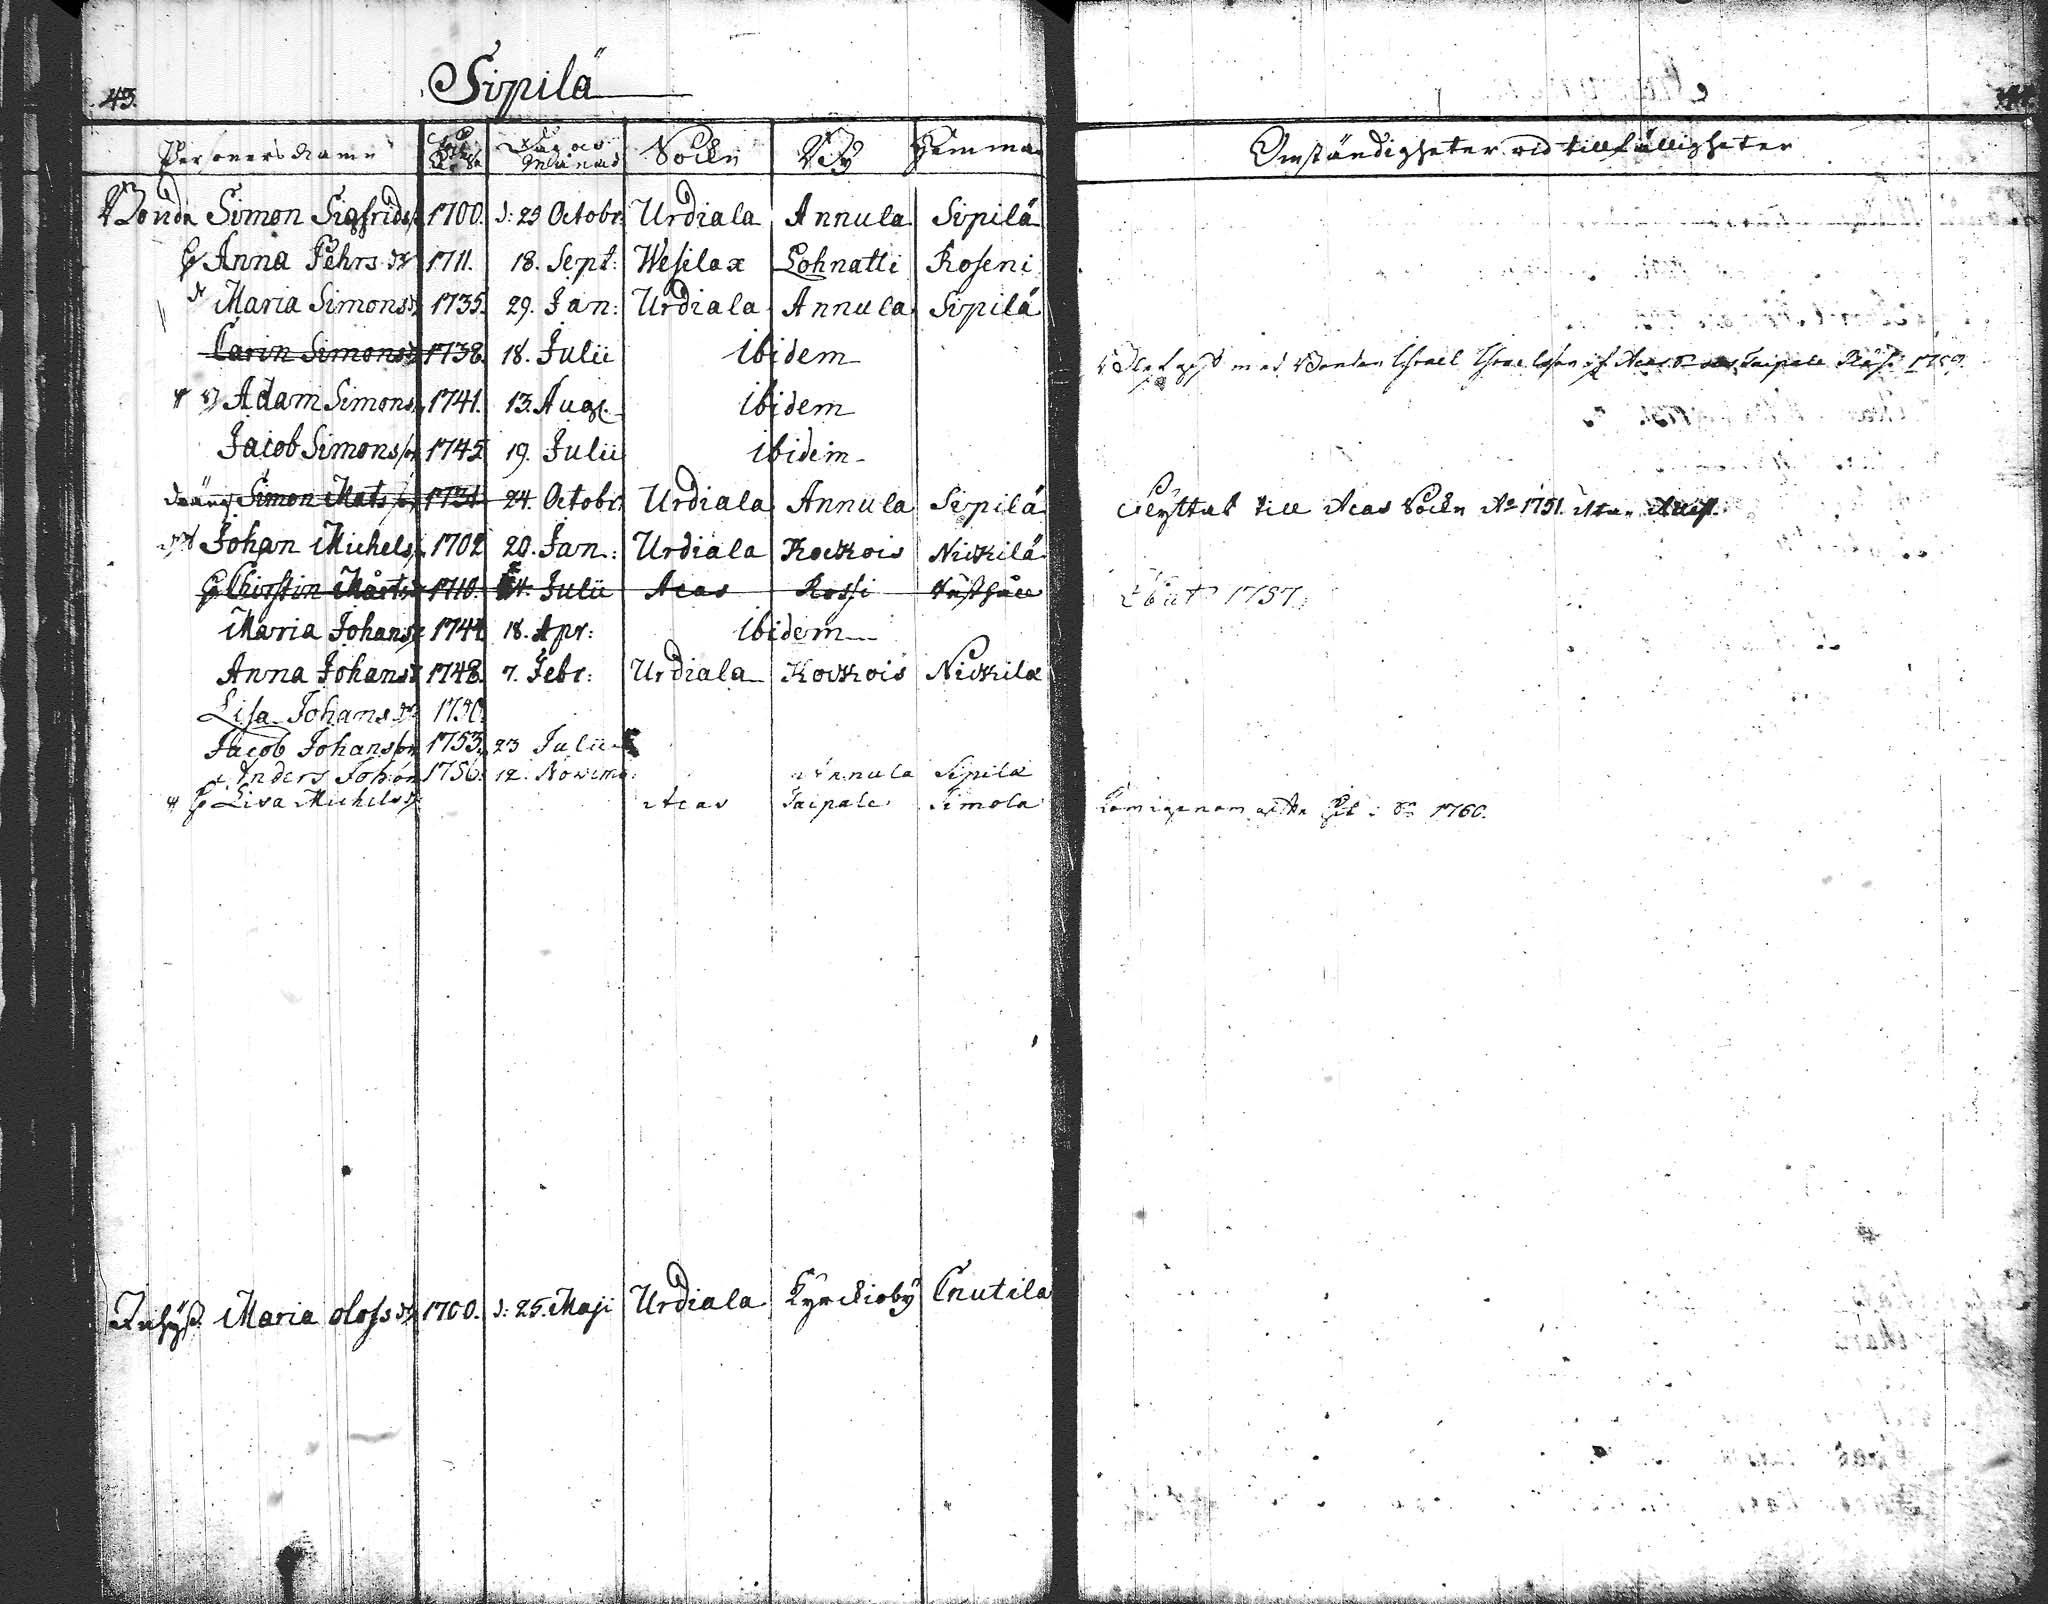 43.
Sipilä
Personers Namn Dag och Månad Sockn By Hemman
Bonde Simon Sigfrids 1700. d: 25 Octobr. Urdiala Annula Sipilä
H Anna Pehrs dr 1711. 18. Sept: Wesilax Lohnatti Roseni
d Maria Simons dr 1735. 29. Jan: Urdiala Annula Sipilä
Carin Simons dr 1738. 18. Julii ibidem
Adam Simons 1741. 13. Aug. ibidem
Jacob Simonsson 1745 19. Julii ibidem
dräng Simon Mats 1731 24. Octobr. Urdiala Annula Sipilä
Johan Michels 1702 20. Jan: Urdiala Kockois Nickilä
H Chirstin Mårts 1710. Julii Acas Rossi
Maria Johans 18. Apr: ibidem
Anna Johans 1748. 7. Febr: Urdiala Kockois Nickilä
Lisa Johans dr
Jacob Johansson 1753. 23 Julii
Anders Johan 1756. 12. Novemb: Annula Sipilä
H Lisa Michels dr Acas Taipale Simola
Inhys. Maria Olofs dr 1700. d: 25. Maji Urdiala Kyrckioby Cnutila
Omständigheter vid tillfälligheter
med Bonden Israel Israelsson Acas Taipale 1759.
Flyttat till Acas Sockn Ao 1751.
1757.
1760.